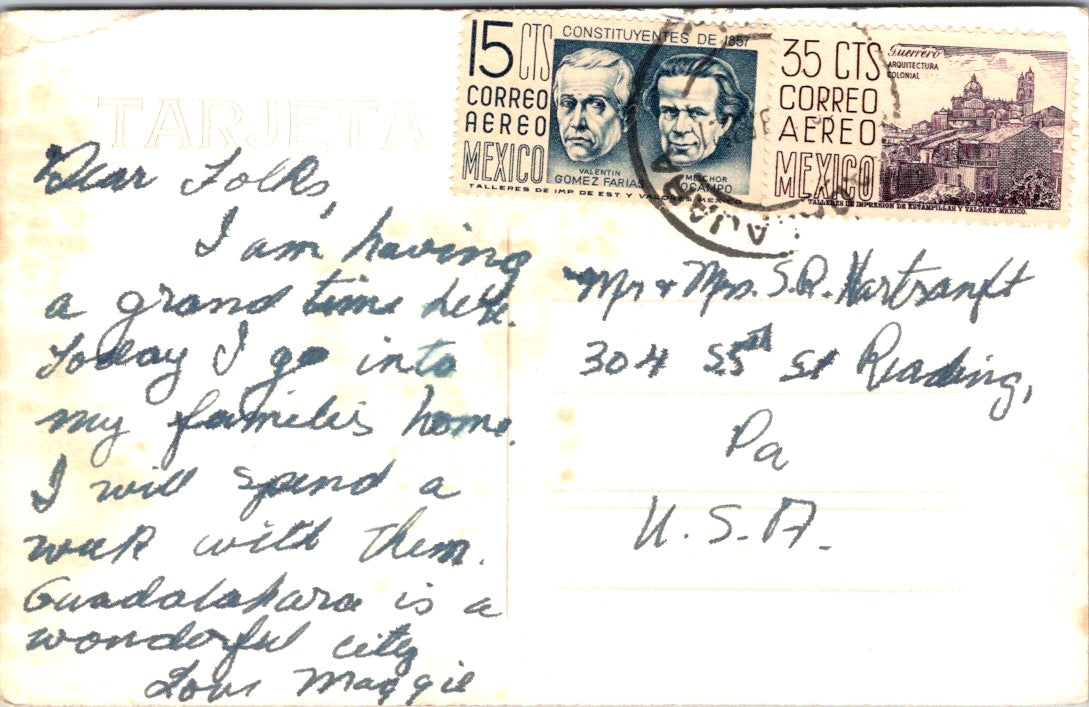 TARJETA
15 CTS
CONSTITUYENTES DE 1857
CORREO
AEREO
MEXICO
VALENTIN
GOMEZ FARIAS
MELCHOR
OCAMPO
TALLERES DE IMP. DE EST. Y VALORES MEXICO
35 CTS
CORREO
AEREO
MEXICO
Guerrero
ARQUITECTURA
COLONIAL
TALLERES DE IMPRESION DE ESTAMPILLAS Y VALORES-MEXICO.
Dear Folks,
I am having
a grand time here.
Today I go into
my families home.
I will spend a
week with them.
Guadalahara is a
wonderful city
Love Maggie
Mr & Mrs. S.R. Hartranft
304 S 5th St Reading,
Pa
U.S.A.